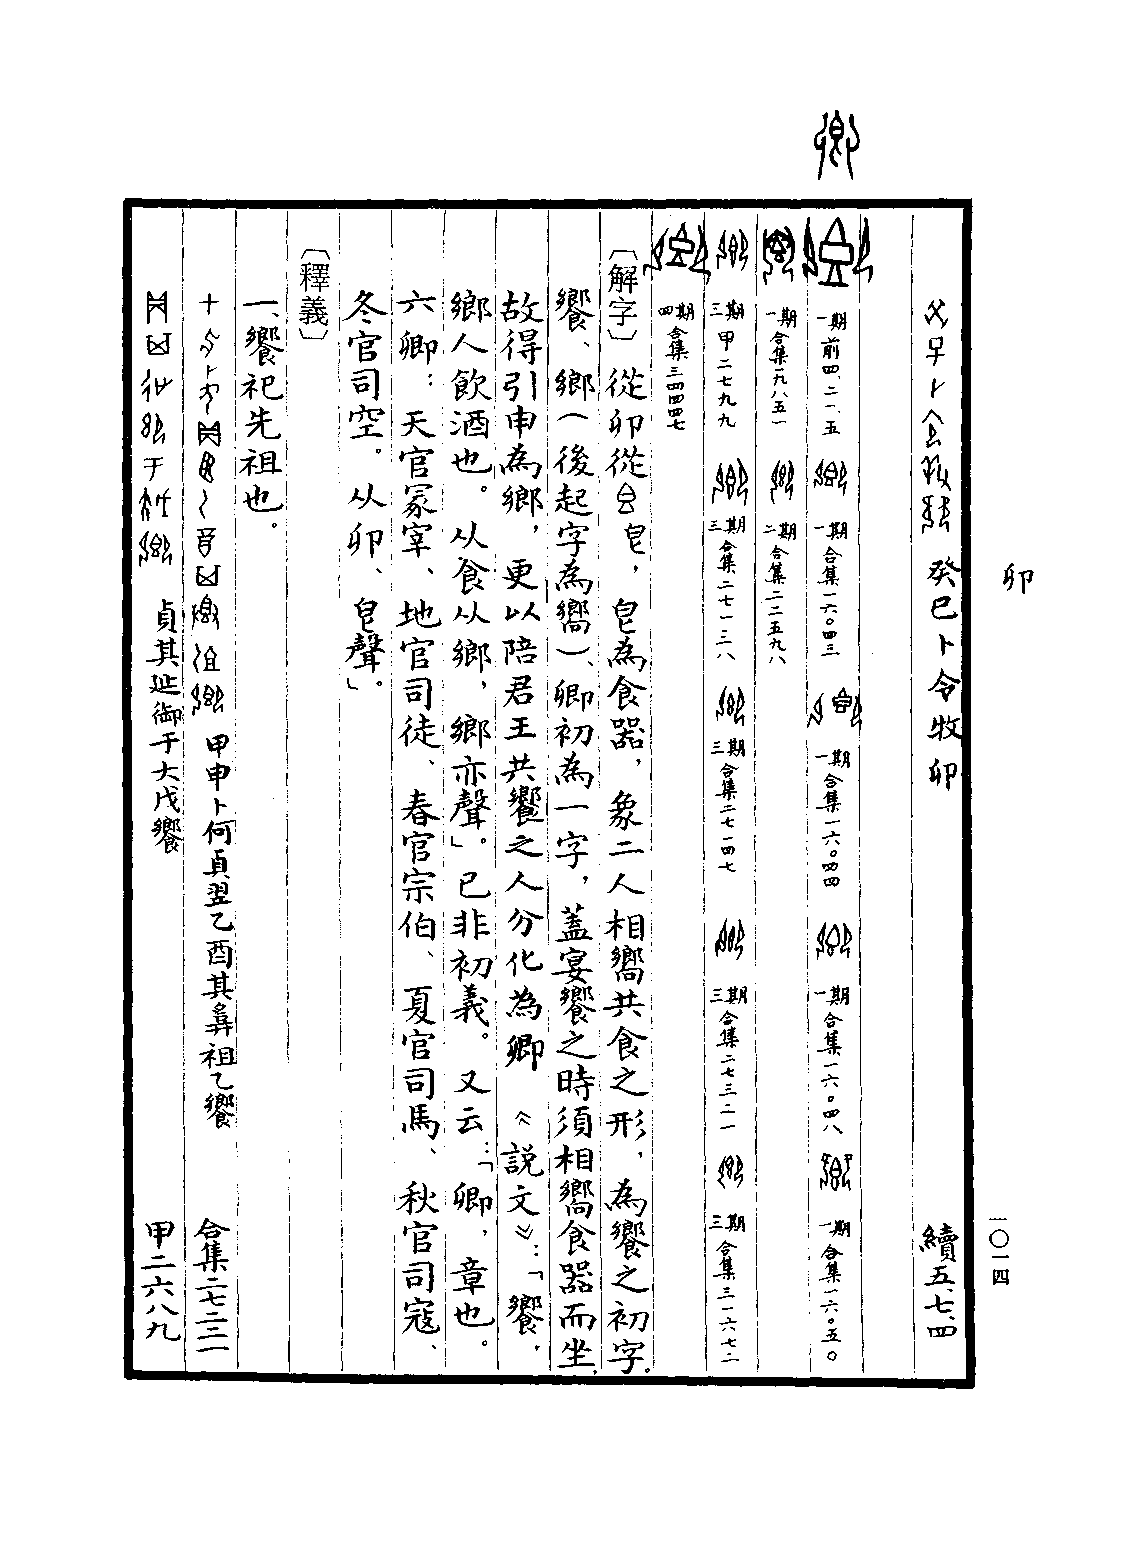 卯
一〇一四
癸巳卜令牧卯 續五、七、四
卿
一期 前四、二一、五 一期 合集一六〇四三 一期 合集一六〇四四 一期 合集一六〇四八 一期 合集一六〇五〇
一期 合集一九八五一 二期 合集二二五九八
三期 甲二七九九 三期 合集二七一三八 三期 合集二七一四七 三期 合集二七三二一 三期 合集三一六七二
四期 合集三四四四七
〔解字〕從卯從皀，皀為食器，象二人相嚮共食之形，為饗之初字．
饗、鄉（後起字為嚮）、卿初為一字，蓋宴饗之時須相嚮食器而坐，
故得引申為鄉，更以陪君王共饗之人分化為卿 《説文》：「饗，
鄉人飲酒也。从食从鄉，鄉亦聲」。已非初義。又云：「卿，章也。
六卿：天官冢宰、地官司徒、春官宗伯、夏官司馬、秋官司寇、
冬官司空。从卯、皀聲」。
〔釋義〕
一、饗祀先祖也。
甲申卜何貞翌乙酉其彝祖乙饗 合集二七二二一
貞其延御于大戊饗 甲二六八九